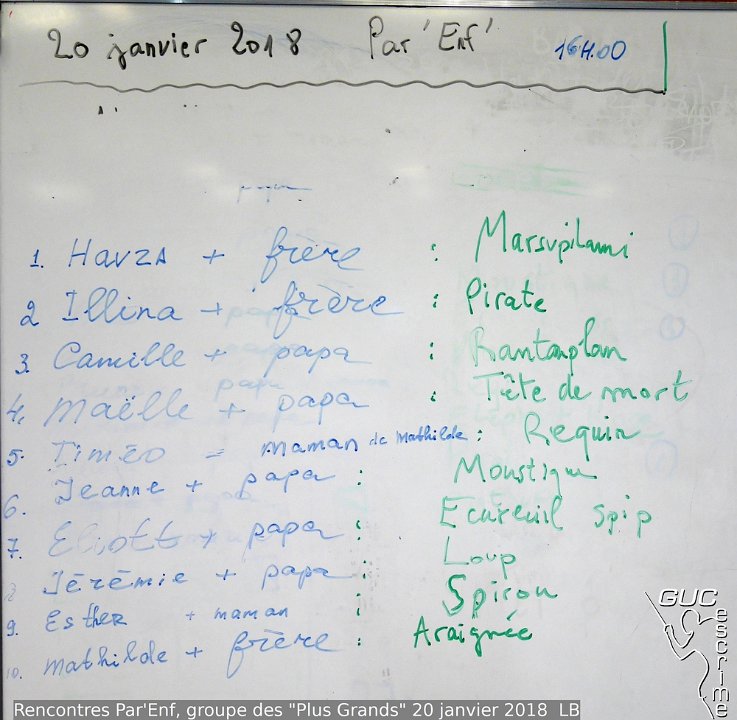 20 janvier 2018 Par'Enf' 16H.00
papa
1. Havza + frère : Marsupilami
2 Illina + frère : Pirate
3. Camille + papa : Rantanplan
4. Maëlle + papa : Tête de mort
5. Timéo = maman de Mathilde : Requin
6. Jeanne + papa : Moustique
7. Eliott + papa : Ecureuil spip
8 Jérémie + papa : Loup
9. Esther + maman : Spirou
10. Mathilde + frère : Araignée
GUC
escrime
Rencontres Par'Enf, groupe des "Plus Grands" 20 janvier 2018 LB